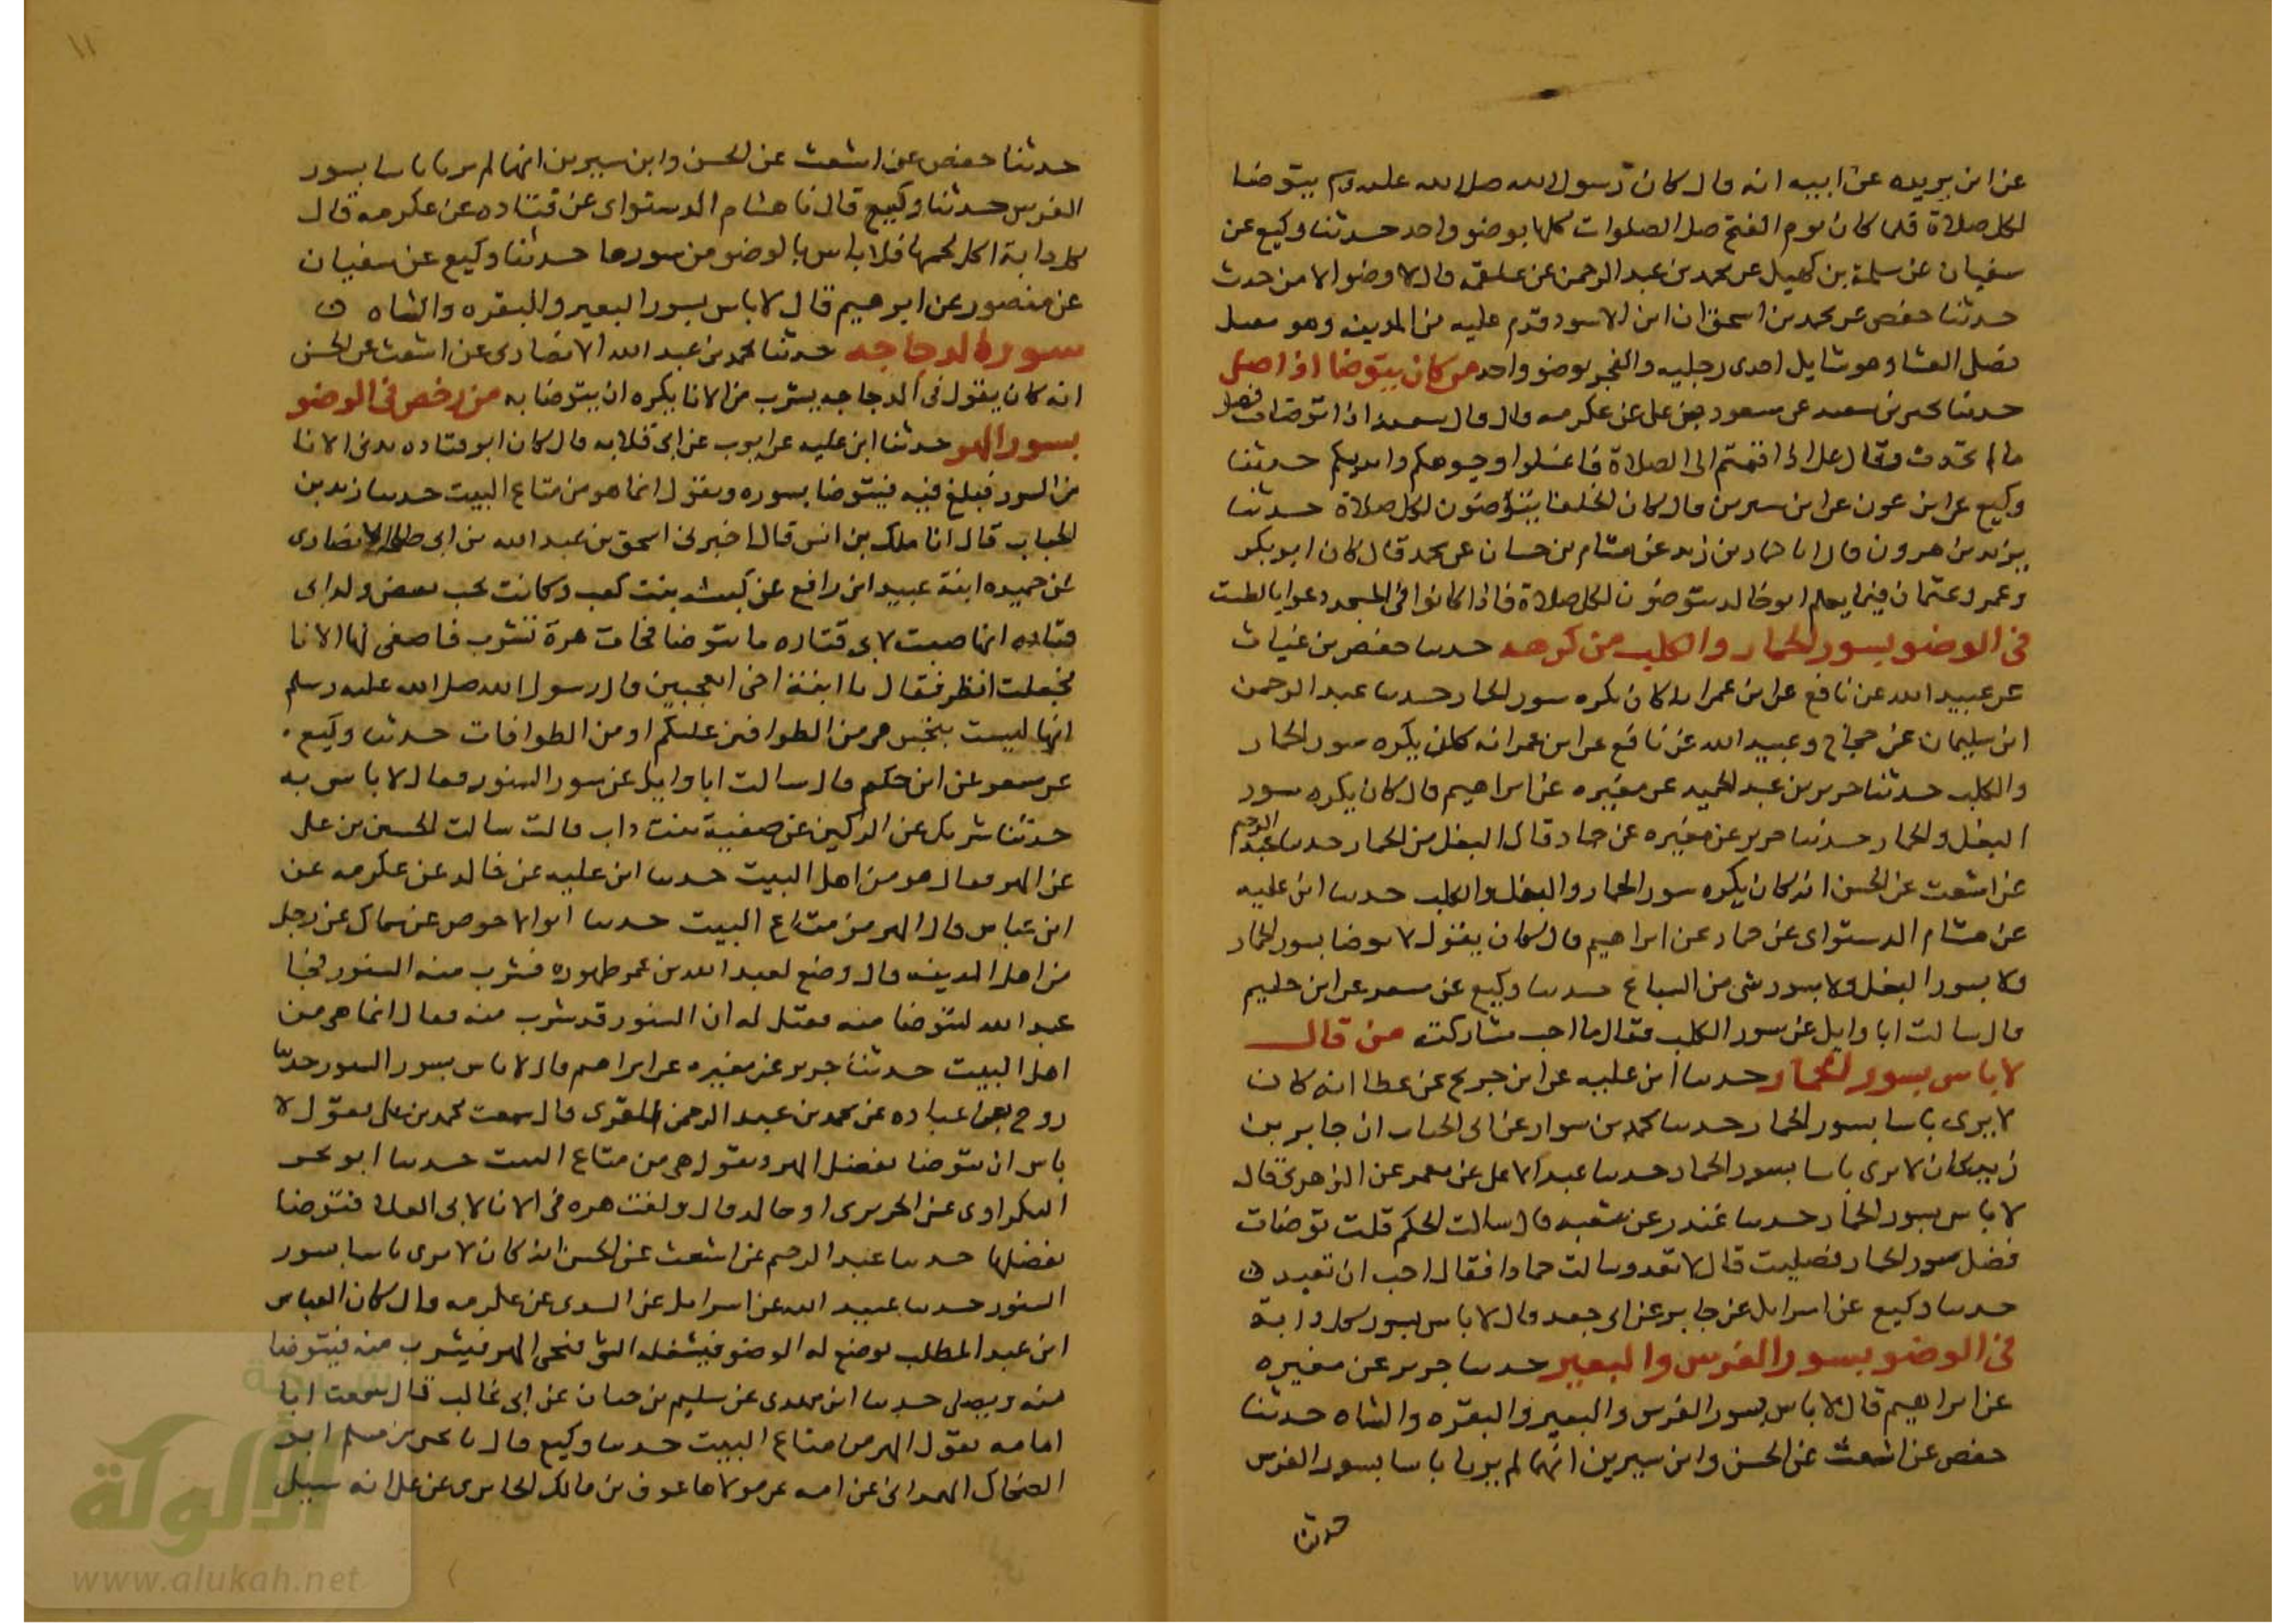 عن ابن بريده عن ابيه انه قال كان رسول الله صلى الله عليه وسلم يتوضا
لكل صلاة فلما كان يوم الفتح صلى الصلوات كلها بوضو واحد حدثنا وكيع عن
سفيان عن سلمة بن كهيل عن محمد بن عبد الرحمن عن علقمه قال لا وضو الا من حدث
حدثنا حفص عن محمد بن اسحق ان ابن الاسود قدم عليه من المدينه وهو
فصلى العشا وهو شايل احدى رجليه والفجر بوضو واحد من كان يتوضا اذا صلى
حدثنا يحيى بن سعيد عن مسعود بن على عن عكرمه قال قال سعد اذا توضات فصل
ما لم تحدث وقال على اذا اقمتم الى الصلاة فاغسلوا وجوهكم وايديكم حدثنا
وكيع عن ابن عون عن ابن سيرين قال كان الخلفا يتوضون لكل صلاة حدثنا
يزيد بن هرون قال انا حماد بن زيد عن هشام بن حسان عن محمد قال كان ابو بكر
وعمر وعثمان فيما يعلم ابو خالد يتوضون لكل صلاة فاذا كانوا فى المسجد دعوا بالطست
فى الوضو بسور الحمار والكلب من كرهه حدثنا حفص بن غياث
عن عبيد الله عن نافع عن ابن عمر انه كان يكره سور الحمار حدثنا عبد الرحمن
ابن سليمان عن حجاج وعبيد الله عن نافع عن ابن عمر انه كان يكره سور الحمار
والكلب حدثنا جرير بن عبد الحميد عن مغيره عن ابراهيم قال كان يكره سور
البغل والحمار حدثنا جرير عن مغيره عن حماد قال البغل من الحمار حدثنا عبد الرحيم
عن اشعث عن الحسن انه كان يكره سور الحمار والبغل والكلب حدثنا ابن عليه
عن هشام الدستواى عن حماد عن ابراهيم قال كان يقول لا توضا بسور الحمار
ولا بسور البغل ولا بسور شى من السباع حدثنا وكيع عن مسعر عن ابن حكيم
قال سالت ابا وايل عن سور الكلب فقال ما احب مشاركته من قال
لا باس بسور الحمار حدثنا ابن عليه عن ابن جريج عن عطا انه كان
لا يرى باسا بسور الحمار حدثنا محمد بن سوار عن ابى الحباب ان جابر بن
زيد كان لا يرى باسا بسور الحمار حدثنا عبد الاعلى عن معمر عن الزهرى قال
لا باس بسور الحمار حدثنا غندر عن شعبه قال سالت الحكم قلت توضات
فضل سور الحمار فصليت قال لا تعد وسالت حمادا فقال احب ان تعيد
حدثنا وكيع عن اسرايل عن جابر عن ابى جعفر قال لا باس بسور كل دابة
فى الوضو بسور الفرس والبعير حدثنا جرير عن مغيره
عن ابراهيم قال لا باس بسور الفرس والبعير والبقره والشاه حدثنا
حفص عن اشعث عن الحسن وابن سيرين انهما لم يريا باسا بسور الفرس
حدثنا
١١
حدثنا حفص عن اشعث عن الحسن وابن سيرين انهما لم يريا باسا بسور
الفرس حدثنا وكيع قال نا هشام الدستواى عن قتاده عن عكرمه قال
كل دابة اكل لحمها فلا باس بالوضو من سورها حدثنا وكيع عن سفيان
عن منصور عن ابرهيم قال لا باس بسور البعير والبقره والشاه
سورة الدجاجه حدثنا محمد بن عبد الله الانصارى عن اشعث عن الحسن
انه كان يقول فى الدجاجه يشرب من الانا يكره ان يتوضا به من رخص فى الوضو
بسور الهر حدثنا ابن عليه عن ايوب عن ابى قلابه قال كان ابو قتاده يدنى الانا
من السنور فيلغ فيه فيتوضا بسوره ويقول انما هو من متاع البيت حدثنا زيد بن
الحباب قال انا ملك بن انس قال اخبرنى اسحق بن عبد الله بن ابى طلحه الانصارى
عن حميده ابنة عبيد ابن رافع عن كبشه بنت كعب وكانت تحب بعض ولد ابى
قتاده انها صبت لابى قتاده ما يتوضا فجات هرة تشرب فاصغى لها الانا
فجعلت انظر فقال يا ابنة اخى اتعجبين قال رسول الله صلى الله عليه وسلم
انها ليست بنجس هى من الطوافين عليكم او من الطوافات حدثنا وكيع
عن مسعر عن ابن حكيم قال سالت ابا وايل عن سور السنور فقال لا باس به
حدثنا شريك عن الركين عن صفية بنت داب قالت سالت الحسين بن على
عن الهر فقال هو من اهل البيت حدثنا ابن عليه عن خالد عن عكرمه عن
ابن عباس قال الهر من متاع البيت حدثنا ابو الاحوص عن سماك عن رجل
من اهل المدينه قال وضع لعبد الله بن عمر طهوره فشرب منه السنور فجا
عبد الله ليتوضا منه فقيل له ان السنور قد شرب منه فقال انما هى من
اهل البيت حدثنا جرير عن مغيره عن ابراهيم قال لا باس بسور السنور حدثنا
روح بن عباده عن محمد بن عبد الرحمن المقرى قال سمعت محمد بن على يقول لا
باس ان يتوضا بفضل الهر ويقول هى من متاع البيت حدثنا ابو بحر
البكراوى عن الجريرى او خالد قال ولغت هره فى الانا لابى العلا فتوضا
بفضلها حدثنا عبد الرحيم عن اشعث عن الحسن انه كان لا يرى باسا بسور
السنور حدثنا عبيد الله عن اسرايل عن السدى عن عكرمه قال كان العباس
ابن عبد المطلب يوضع له الوضو فيشغله الشى فيجى الهر فيشرب منه فيتوضا
منه ويصلى حدثنا ابن مهدى عن سليم بن حيان عن ابى غالب قال سمعت ابا
امامه يقول الهر من متاع البيت حدثنا وكيع قال نا يحيى بن مسلم ابو
الضحاك الهمدانى عن امه عن مولاها عوف بن مالك الجابرى عن على انه سيل
شبكة
الألوكة
www.alukah.net